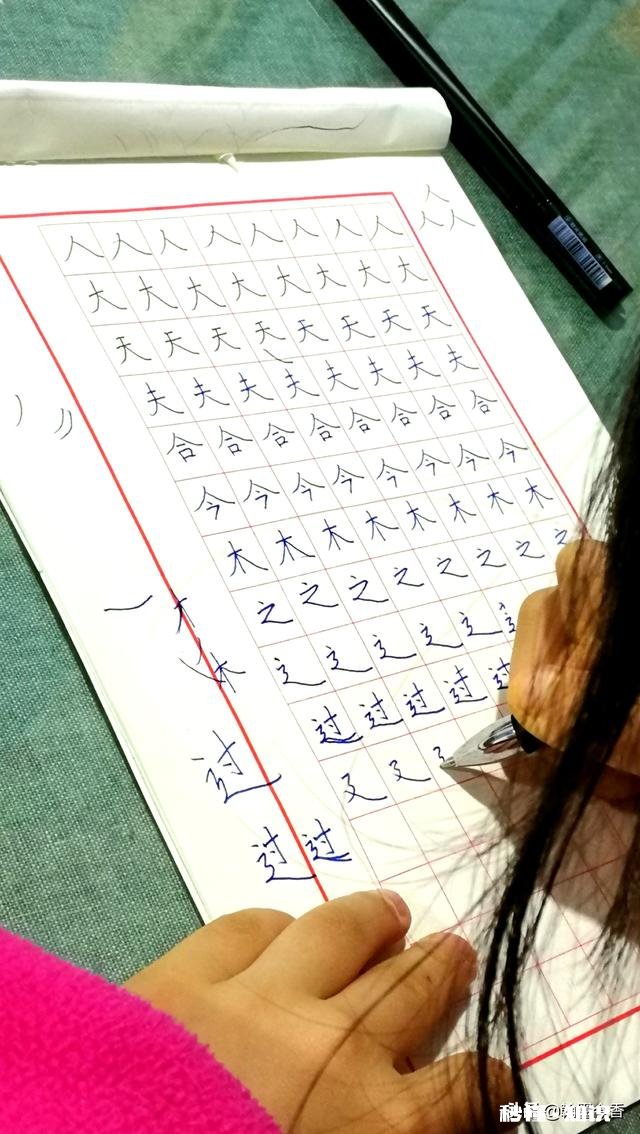 人
人人
人人人人人人人人
大大大大大大大大
天天天天天天天天
夫夫夫夫夫夫夫夫
合合合合合合合合
今今今今今今今今
木木木木木木木木
之之之之之之之之
辶辶辶辶辶
过过过过过
廴廴
一
木
过
过过